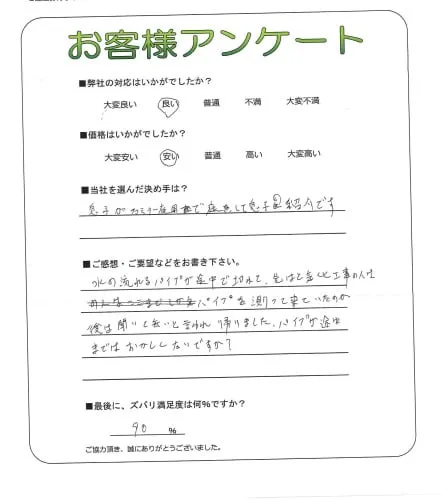 お客様アンケート
■弊社の対応はいかがでしたか？
大変良い 良い 普通 不満 大変不満
■価格はいかがでしたか？
大変安い 安い 普通 高い 大変高い
■当社を選んだ決め手は？
息子が で 息子の紹介です
■ご感想・ご要望などをお書き下さい。
水の流れるパイプが途中で切れて、 工事の人は
パイプを測って来ていたのか
後は聞いて無いと言われ帰りました、パイプが途中
まではおかしくないですか？
■最後に、ズバリ満足度は何%ですか？
90 %
ご協力頂き、誠にありがとうございました。